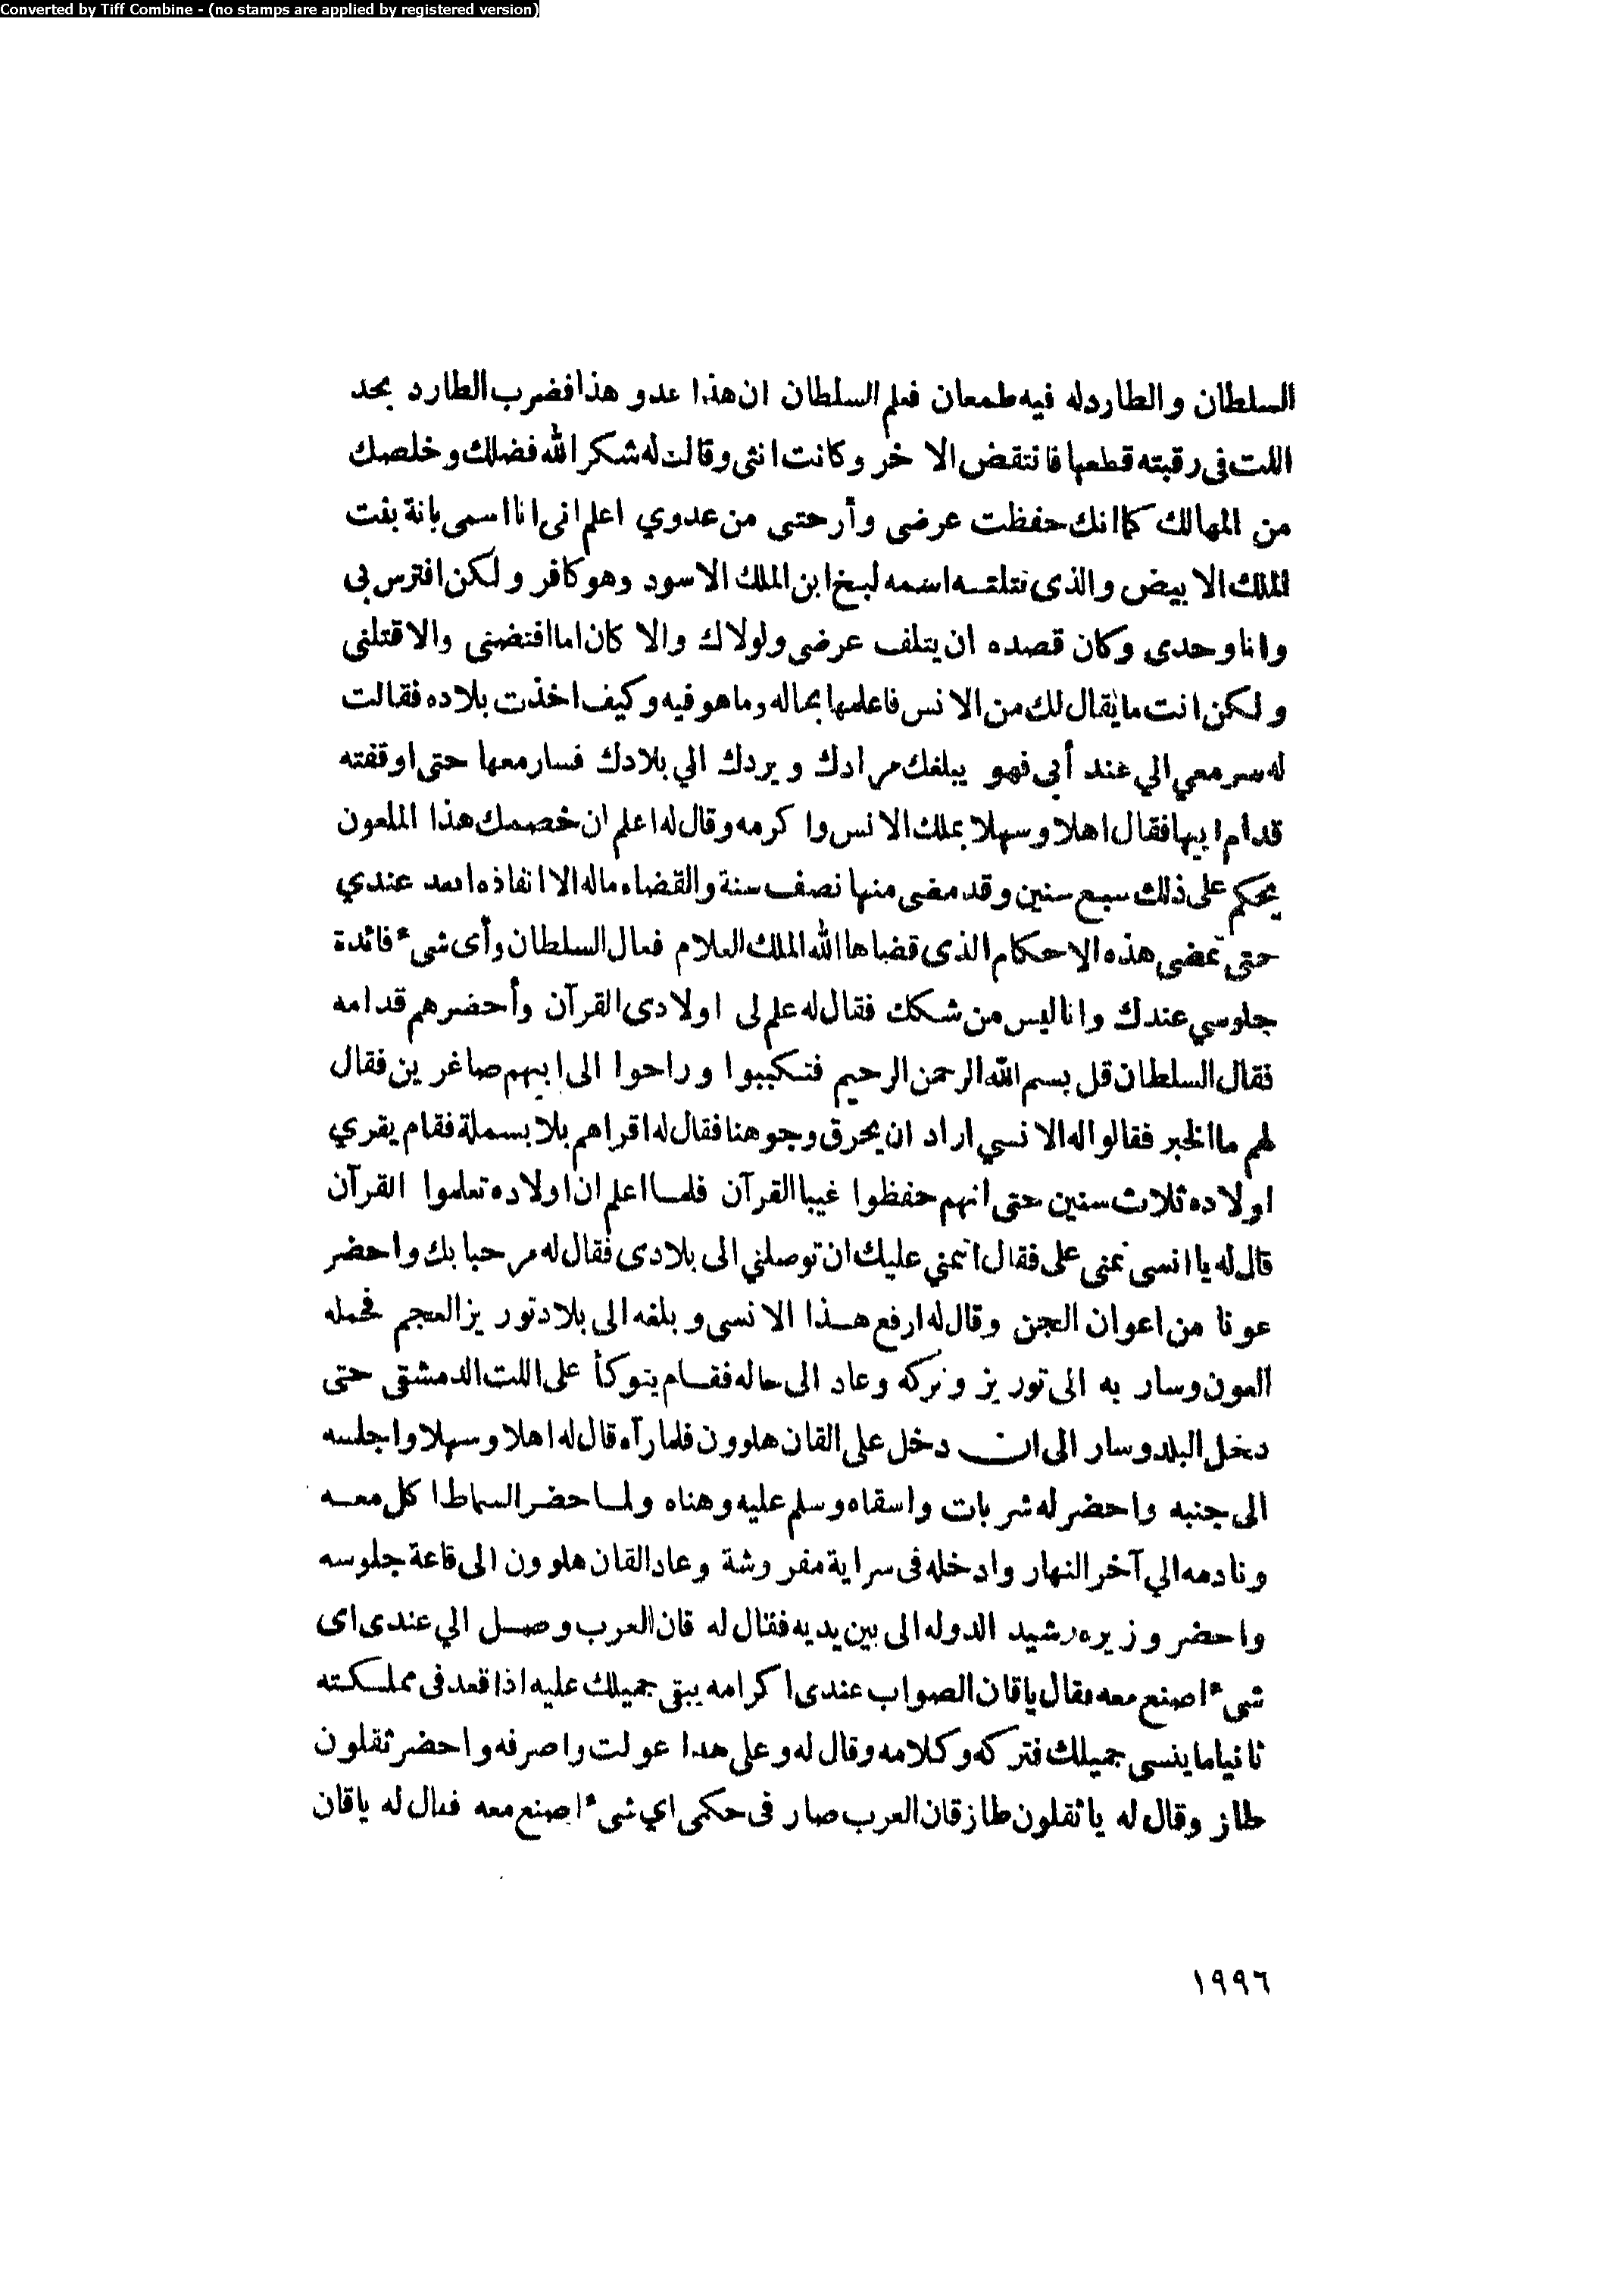 Converted by Tiff Combine - (no stamps are applied by registered version)
السلطان والطارد له فيه طمعان فعلم السلطان ان هذا عدو هذا فضرب الطارد بحد
اللت فى رقبته قطعها فانتقض الاخر وكانت انثى وقالت له شكر الله فضلك وخلصك
من المهالك كما انك حفظت عرضى وأرحتى من عدوي اعلم انى انا اسمى بانة بنت
الملك الابيض والذى قتلته اسمه لبخ ابن الملك الاسود وهو كافر ولكن افترس بى
وانا وحدى وكان قصده ان يتلف عرضى ولولاك والا كان اما افتضنى والا قتلنى
ولكن انت ما يقال لك من الانس فاعلمها بحاله وما هو فيه وكيف اخذت بلاده فقالت
له سر معي الي عند أبى فهو يبلغك مرادك ويردك الي بلادك فسار معها حتى اوقفته
قدام ابيها فقال اهلا وسهلا بملك الانس واكرمه وقال له اعلم ان خصمك هذا الملعون
يحكم على ذلك سبع سنين وقد مضى منها نصف سنة والقضاء ماله الا انفاذه اقعد عندي
حتى تمضى هذه الاحكام الذى قضاها الله الملك العلام فقال السلطان وأى شىء فائدة
جلوسي عندك وانا ليس من شكك فقال له علم لى اولادى القرآن وأحضرهم قدامه
فقال السلطان قل بسم الله الرحمن الرحيم فتكببوا وراحوا الى ابيهم صاغرين فقال
لهم ما الخبر فقالوا له الانسي اراد ان يحرق وجوهنا فقال له اقراهم بلا بسملة فقام يقري
اولاده ثلاث سنين حتى انهم حفظوا غيبا القرآن فلما اعلم ان اولاده تعلموا القرآن
قال له يا انسى تمنى على فقال اتمني عليك ان توصلني الى بلادى فقال له مرحبا بك واحضر
عونا من اعوان الجن وقال له ارفع هذا الانسى وبلغه الى بلاد توريز العجم فحمله
العون وسار به الى توريز وتركه وعاد الى حاله فقام يتوكأ على اللت الدمشقى حتى
دخل البلد وسار الى ان دخل على القان هلوون فلما رآه قال له اهلا وسهلا واجلسه
الى جنبه واحضر له شربات واسقاه وسلم عليه وهناه ولما حضر السماط اكل معه
ونادمه الي آخر النهار وادخله فى سراية مفروشة وعاد القان هلوون الى قاعة جلوسه
واحضر وزيره رشيد الدوله الى بين يديه فقال له قان العرب وصل الي عندى اى
شىء اصنع معه فقال يا قان الصواب عندى اكرامه يبقى جميلك عليه اذا قعد فى مملكته
ثانيا ما ينسى جميلك فتركه وكلامه وقال له وعلى هدا عولت واصرفه واحضر ثقلون
طاز وقال له يا ثقلون طاز قان العرب صار فى حكمى اي شىء اصنع معه فقال له يا قان
١٩٩٦